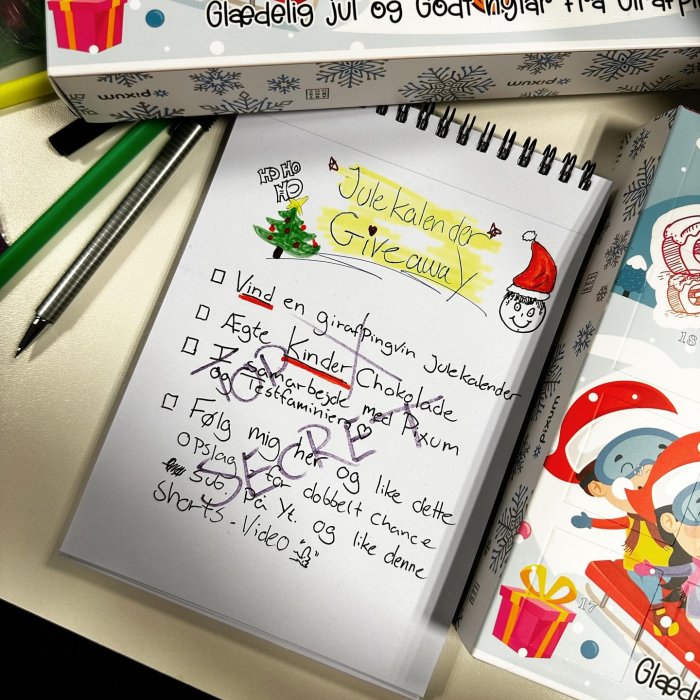 Glædelig jul og Godt nytår fra Girafpi
pixum
HO HO
HO
Julekalender
Giveaway
Vind en girafpingvin julekalender
Ægte Kinder Chokolade
I samarbejde med Pixum
og Testfaminien
TOP
SECRET
Følg mig her og like dette
Opslag for dobbelt chance
Sub på Yt. og like denne
Shorts-Video
pixum
18
17
Glæde